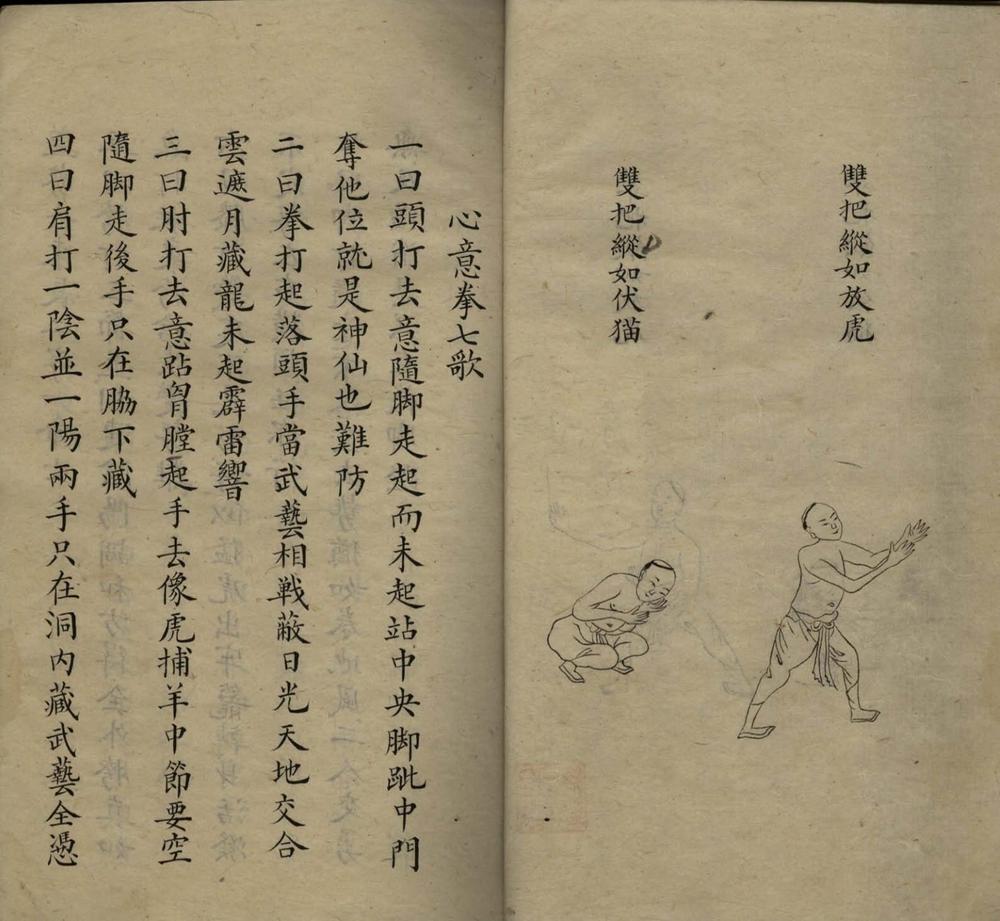 雙把縱如放虎
雙把縱如伏猫
心意拳七歌
一曰頭打去意隨脚走起而未起站中央脚跐中門
奪他位就是神仙也難防
二曰拳打起落頭手當武藝相戰蔽日光天地交合
雲遮月藏龍未起霹雷響
三曰肘打去意跕胷膛起手去像虎捕羊中節要空
隨脚走後手只在脇下藏
四曰肩打一陰並一陽兩手只在洞內藏武藝全憑